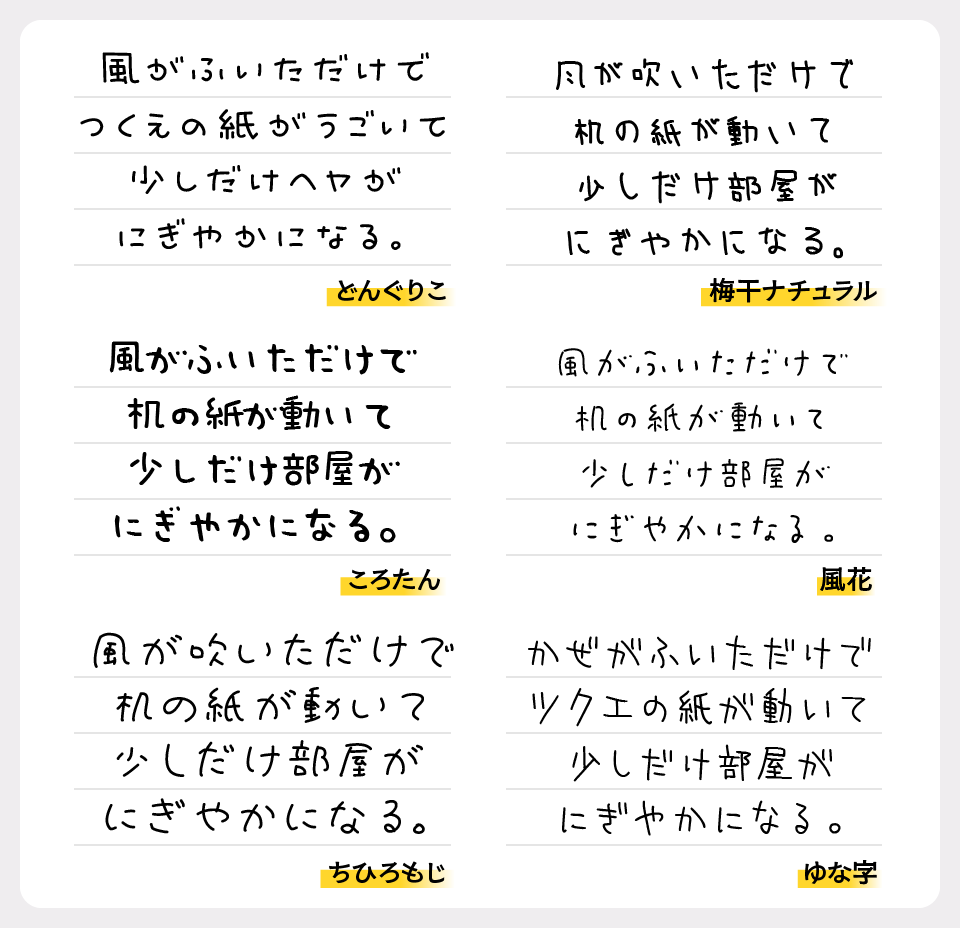 風がふいただけで
つくえの紙がうごいて
少しだけヘヤが
にぎやかになる。
どんぐりこ
風が吹いただけで
机の紙が動いて
少しだけ部屋が
にぎやかになる。
梅干ナチュラル
風がふいただけで
机の紙が動いて
少しだけ部屋が
にぎやかになる。
ころたん
風がふいただけで
机の紙が動いて
少しだけ部屋が
にぎやかになる。
風花
風が吹いただけで
机の紙が動いて
少しだけ部屋が
にぎやかになる。
ちひろもじ
かぜがふいただけで
ツクエの紙が動いて
少しだけ部屋が
にぎやかになる。
ゆな字